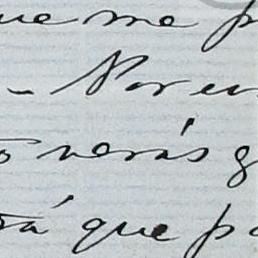 que me p
- Por es
verás q
rá que pa